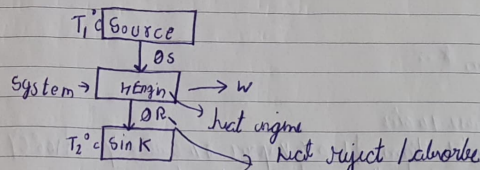 T₁°c Source
QS
System → HEngin → W
heat engine
QR
T₂°c Sink
heat reject / absorbe